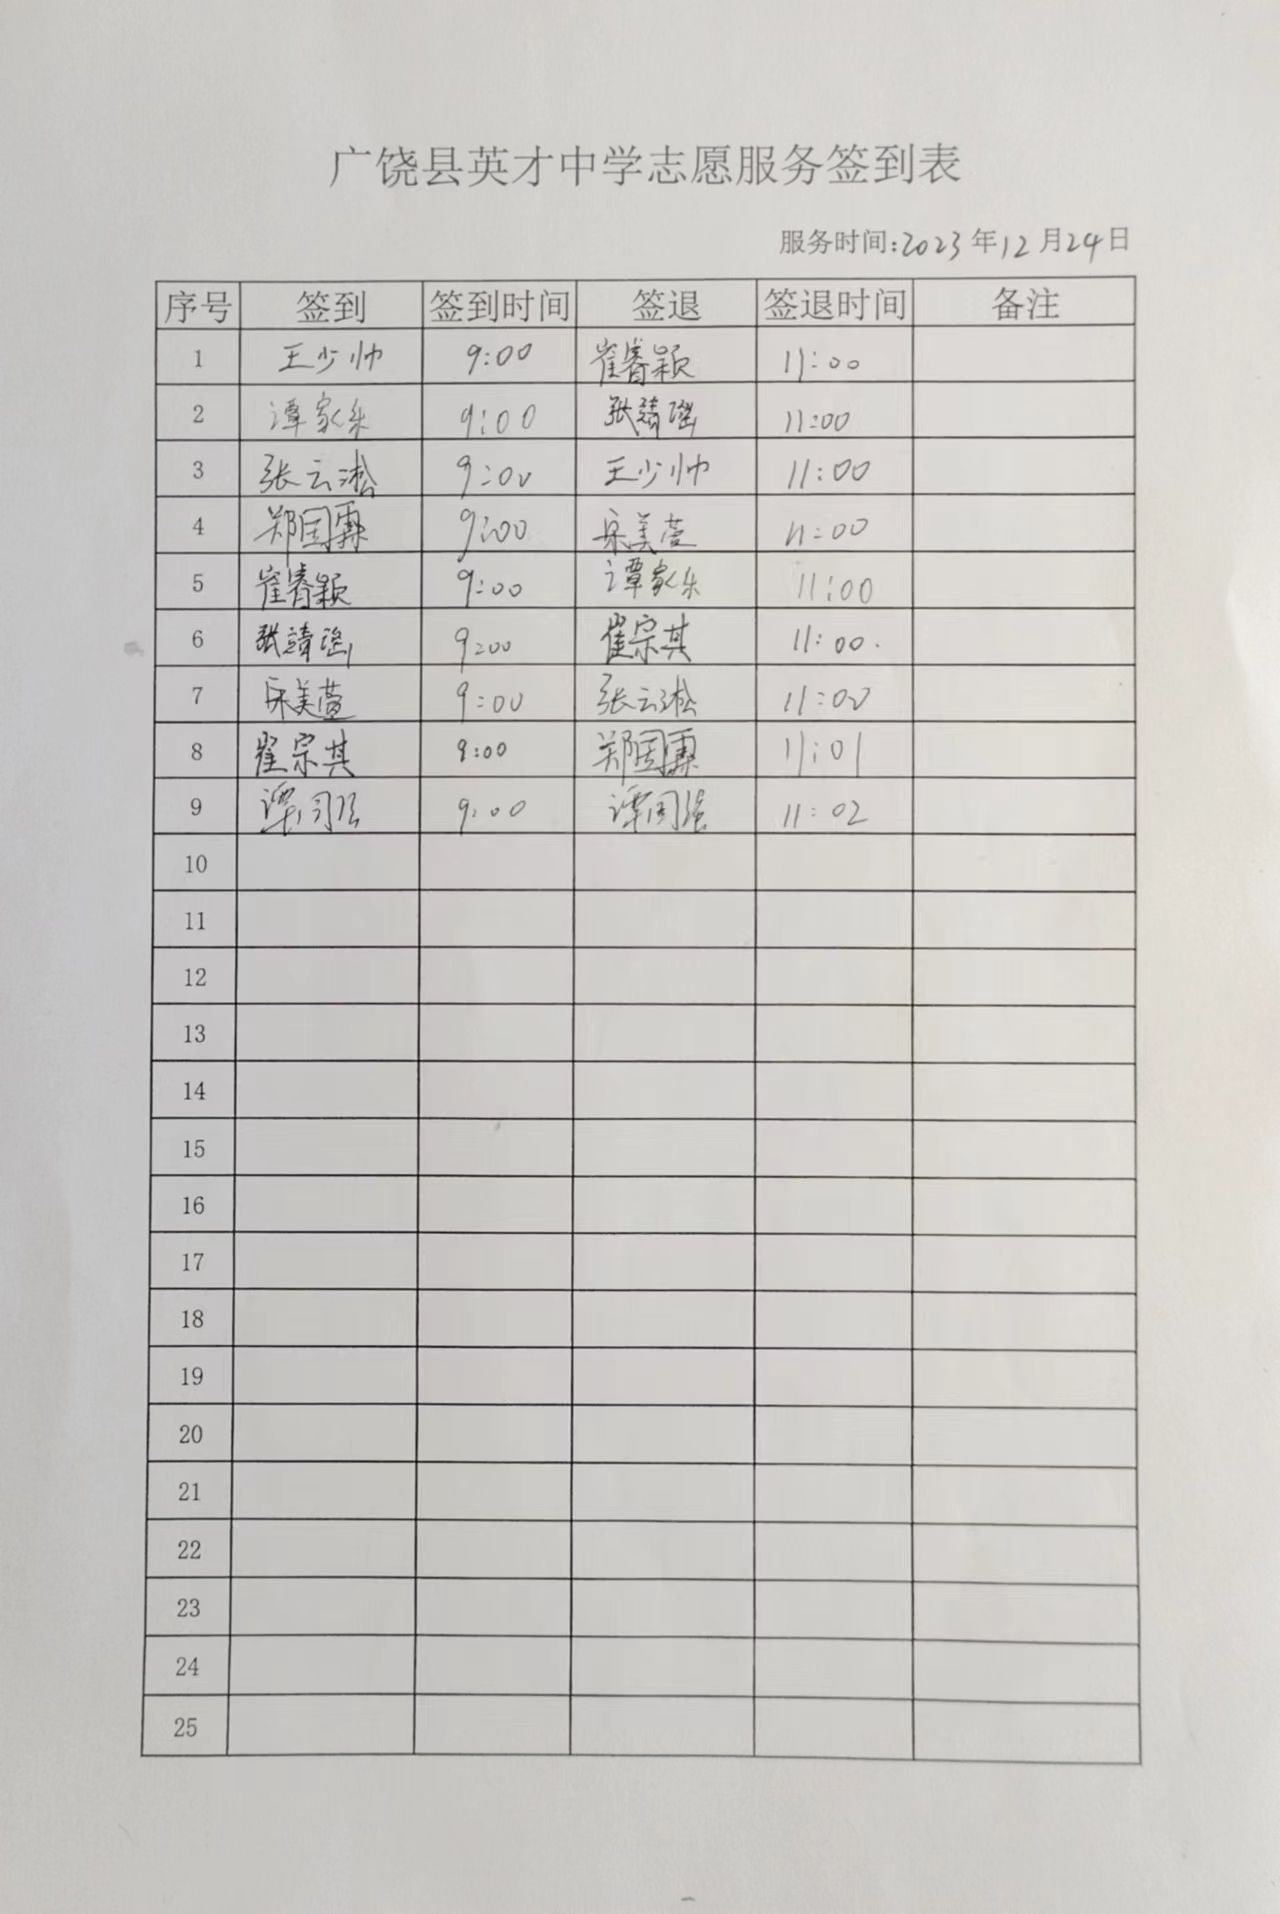 广饶县英才中学志愿服务签到表
服务时间:2023年12月24日
序号 签到 签到时间 签退 签退时间 备注
1 王少帅 9:00 崔睿颖 11:00
2 谭家乐 9:00 张靖瑶 11:00
3 张云淞 9:00 王少帅 11:00
4 郑国霖 9:00 宋美萱 11:00
5 崔睿颖 9:00 谭家乐 11:00
6 张靖瑶 9:00 崔宗其 11:00.
7 宋美萱 9:00 张云淞 11:00
8 崔宗其 9:00 郑国霖 11:01
9 谭同强 9:00 谭同强 11:02
10
11
12
13
14
15
16
17
18
19
20
21
22
23
24
25